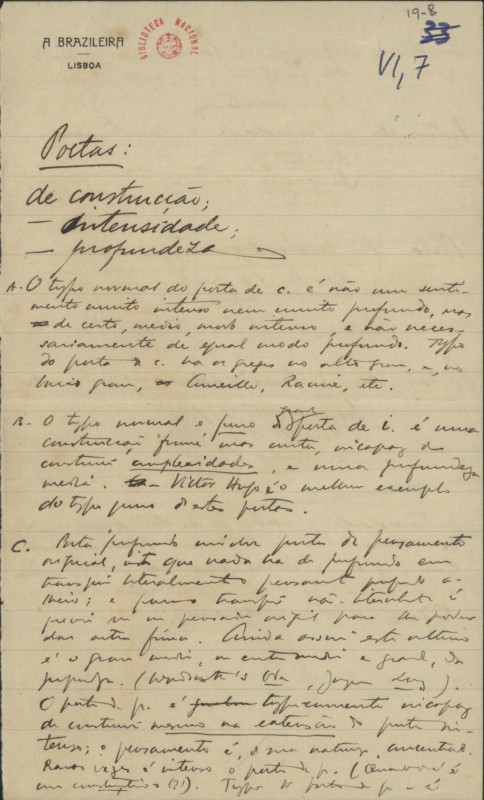 19-8
33
VI, 7
A BRAZILEIRA
LISBOA
BIBLIOTECA NACIONAL
Poetas:
de construcção;
— intensidade;
— profundeza
A. - O typo normal do poeta de c. é não um senti-
mento muito intenso nem muito profundo, mas
de certo, medio, modo intenso, e não neces-
sariamente de egual modo profundo. Typo
do poeta de c. na os gregos no alto grau, e, no
medio grau, Corneille, Racine, etc.
B. - O typo normal e puro do grande poeta de i. é uma
construcção firme, mas curta, incapaz de
construir complexidades, e uma profundeza
media. — Victor Hugo é o melhor exemplo
do typo puro d'estes poetas.
C. Poeta profundo poeta de pensamento
original, visto que nada ha de profundo em
transpôr litteralmente pensamento profundo a-
lheio; e para transpôr não-litteralmente é
preciso ser um pensador
das outra fórma. Ainda assim este ultimo
é o grau medio, ou entre medio e grande, da
profundeza. (Wordsworth's Ode,
O poeta de p. é typicamente incapaz
de construir mesmo na extensão do poeta in-
tenso; o pensamento é, de sua natureza,
Raras vezes é intenso o poeta de p. (
em (?)). Typo do poeta de p. — é